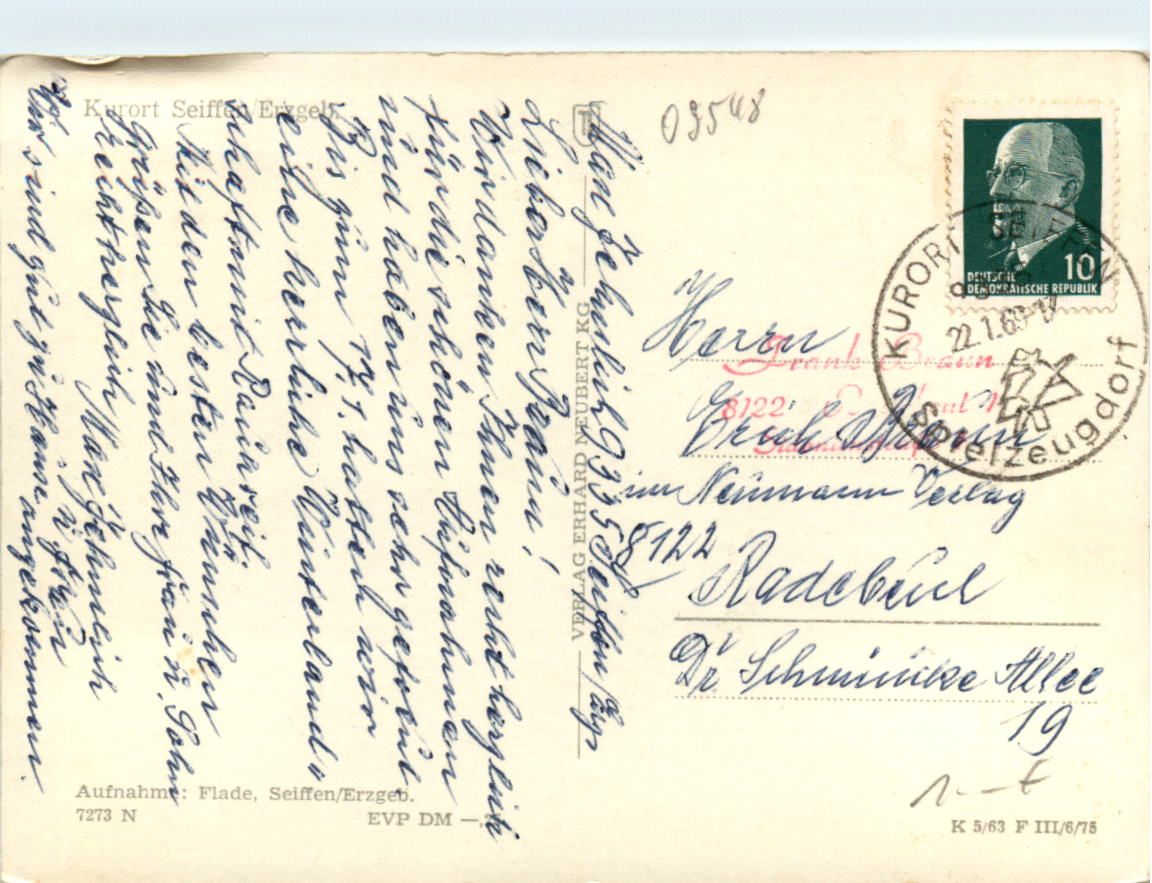 Kurort Seiffen/Erzgeb.
09548
Max Jehnlich 9335 Seiffen/Erzg
Lieber Herr Braun!
Wir danken Ihnen recht herzlich
für die schönen Aufnahmen
und haben uns sehr gefreut.
Bis zum 14.1. hatten wir
eine herrliche Winterlands
schaft mit Rauhreif.
Mit den besten Wünschen
grüßen Sie und Ihre Frau u. Sohn
recht herzlich Max Jehmlich
u. Frau
Wir sind gut zu Hause angekommen.
VERLAG ERHARD NEUBERT KG
DEUTSCHE
DEMOKRATISCHE REPUBLIK
10
KURORT SEIFFEN
22.1.69-17
Spielzeugdorf
Herrn
Erich Braun
im Neumann Verlag
8122
Radebeul
Dr. Schmincke Allee
19
Frank Braun
8122
Aufnahme: Flade, Seiffen/Erzgeb.
7273 N
EVP DM
K 5/63 F III/6/75